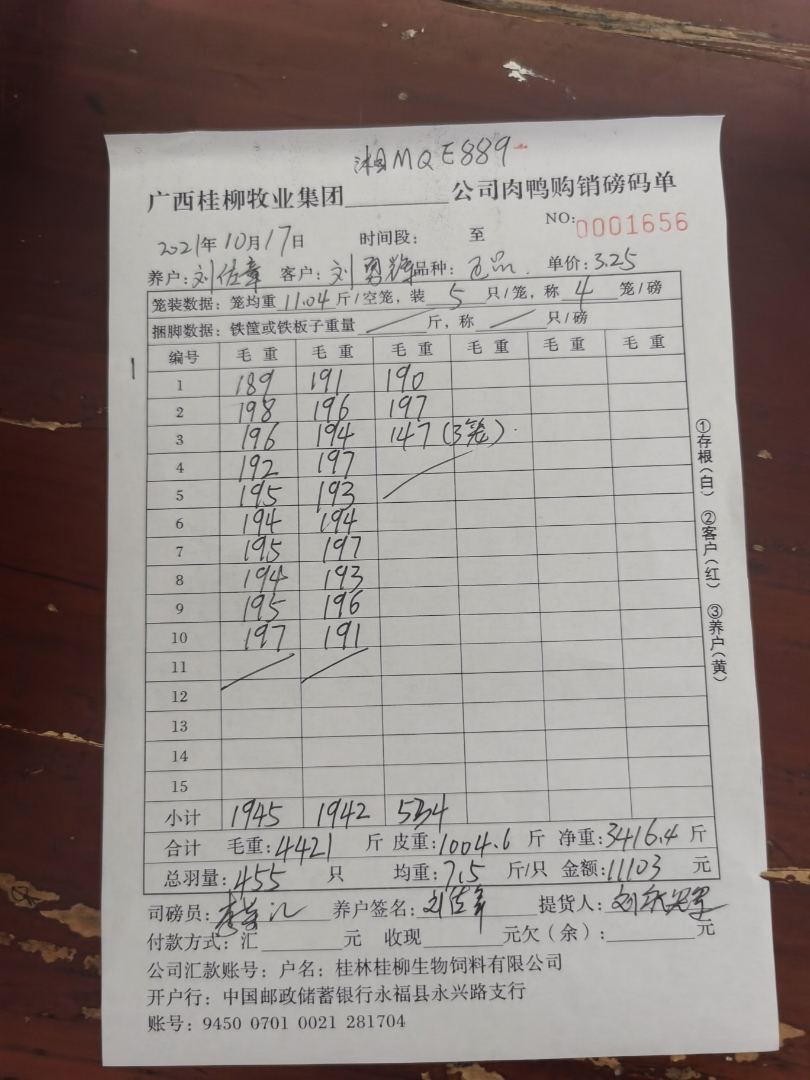 湘MQE889
广西桂柳牧业集团________公司肉鸭购销磅码单
NO:0001656
2021年10月17日 时间段: 至
养户:刘佐章 客户:刘勇辉 品种: 单价:3.25
笼装数据: 笼均重 11.04 斤/空笼, 装 5 只/笼, 称 4 笼/磅
捆脚数据: 铁筐或铁板子重量 / 斤, 称 / 只/磅
编号 毛重 毛重 毛重 毛重 毛重 毛重
1 189 191 190
2 198 196 197
3 196 194 147 (3笼).
4 192 197
5 195 193
6 194 194
7 195 197
8 194 193
9 195 196
10 197 191
11
12
13
14
15
小计 1945 1942 534
合计 毛重:4421 斤 皮重:1004.6 斤 净重:3416.4 斤
总羽量:455 只 均重:7.5 斤/只 金额:11103 元
司磅员: 养户签名:刘佐章 提货人:
付款方式:汇________元 收现________元欠(余):________元
公司汇款账号: 户名: 桂林桂柳生物饲料有限公司
开户行: 中国邮政储蓄银行永福县永兴路支行
账号: 9450 0701 0021 281704
①存根(白) ②客户(红) ③养户(黄)